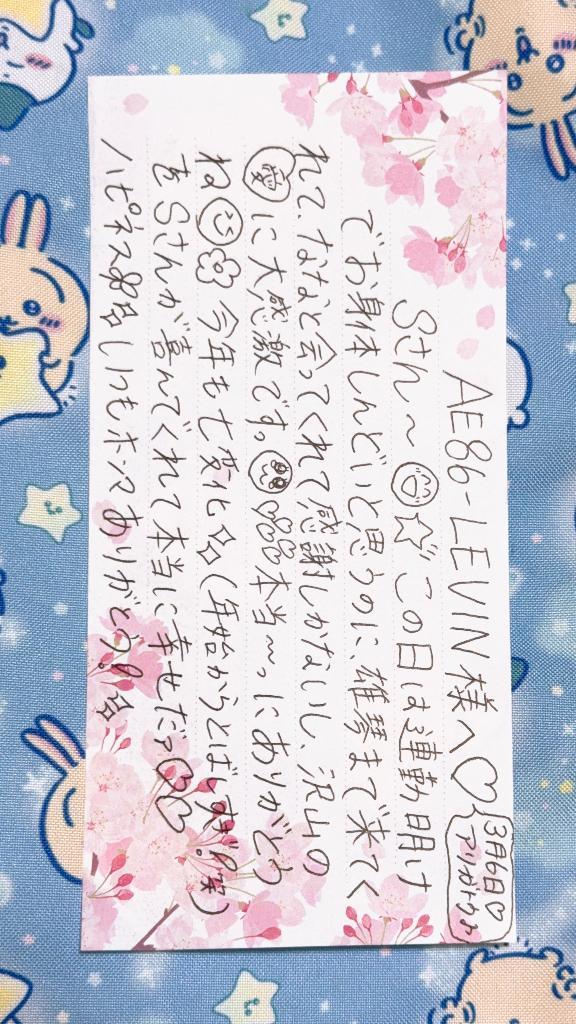 AE86-LEVIN様へ♡
3月6日♡
アリガトウ♪
Sさん〜☆この日は連勤明け
でお身体しんどいと思うのに、雄琴まで来てく
れて、ななと会ってくれて感謝しかないし、沢山の
愛に大感激です。♡♡♡本当〜っにありがとう
ね 今年も七変化✧(年始からとばしすぎ!?(笑)
をSさんが喜んでくれて本当に幸せだァ♡♡
ハピネス✧いつもホンマありがとう!✧